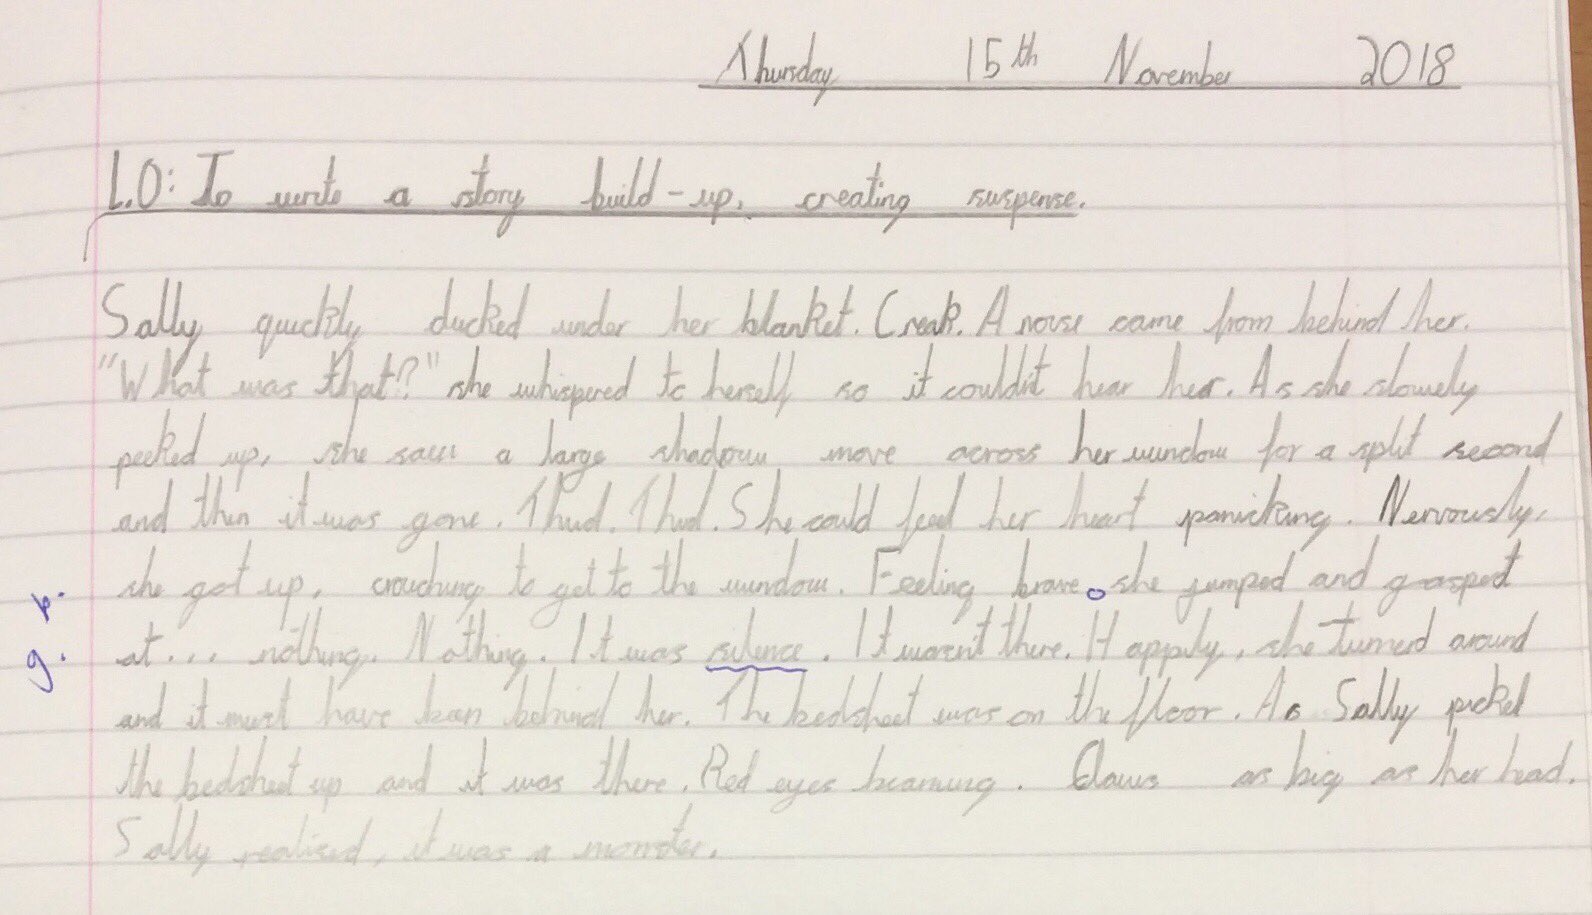 Thursday 15th November 2018
L.O: To write a story build-up, creating suspense.
Sally quickly ducked under her blanket. Creak. A noise came from behind her.
"What was that?" she whispered to herself so it couldn't hear her. As she slowely
peeked up, she saw a large shadow move across her window for a split second
and then it was gone. Thud. Thud. She could feel her heart panicking. Nervously,
she got up, crouching to get to the window. Feeling brave. she jumped and grasped
at... nothing. Nothing. It was silence. It weren't there. Happily, she turned around
and it must have been behind her. The bedsheet was on the floor. As Sally picked
the bedsheet up and it was there. Red eyes beaming. Claws as big as her head.
Sally realised, it was a monster.